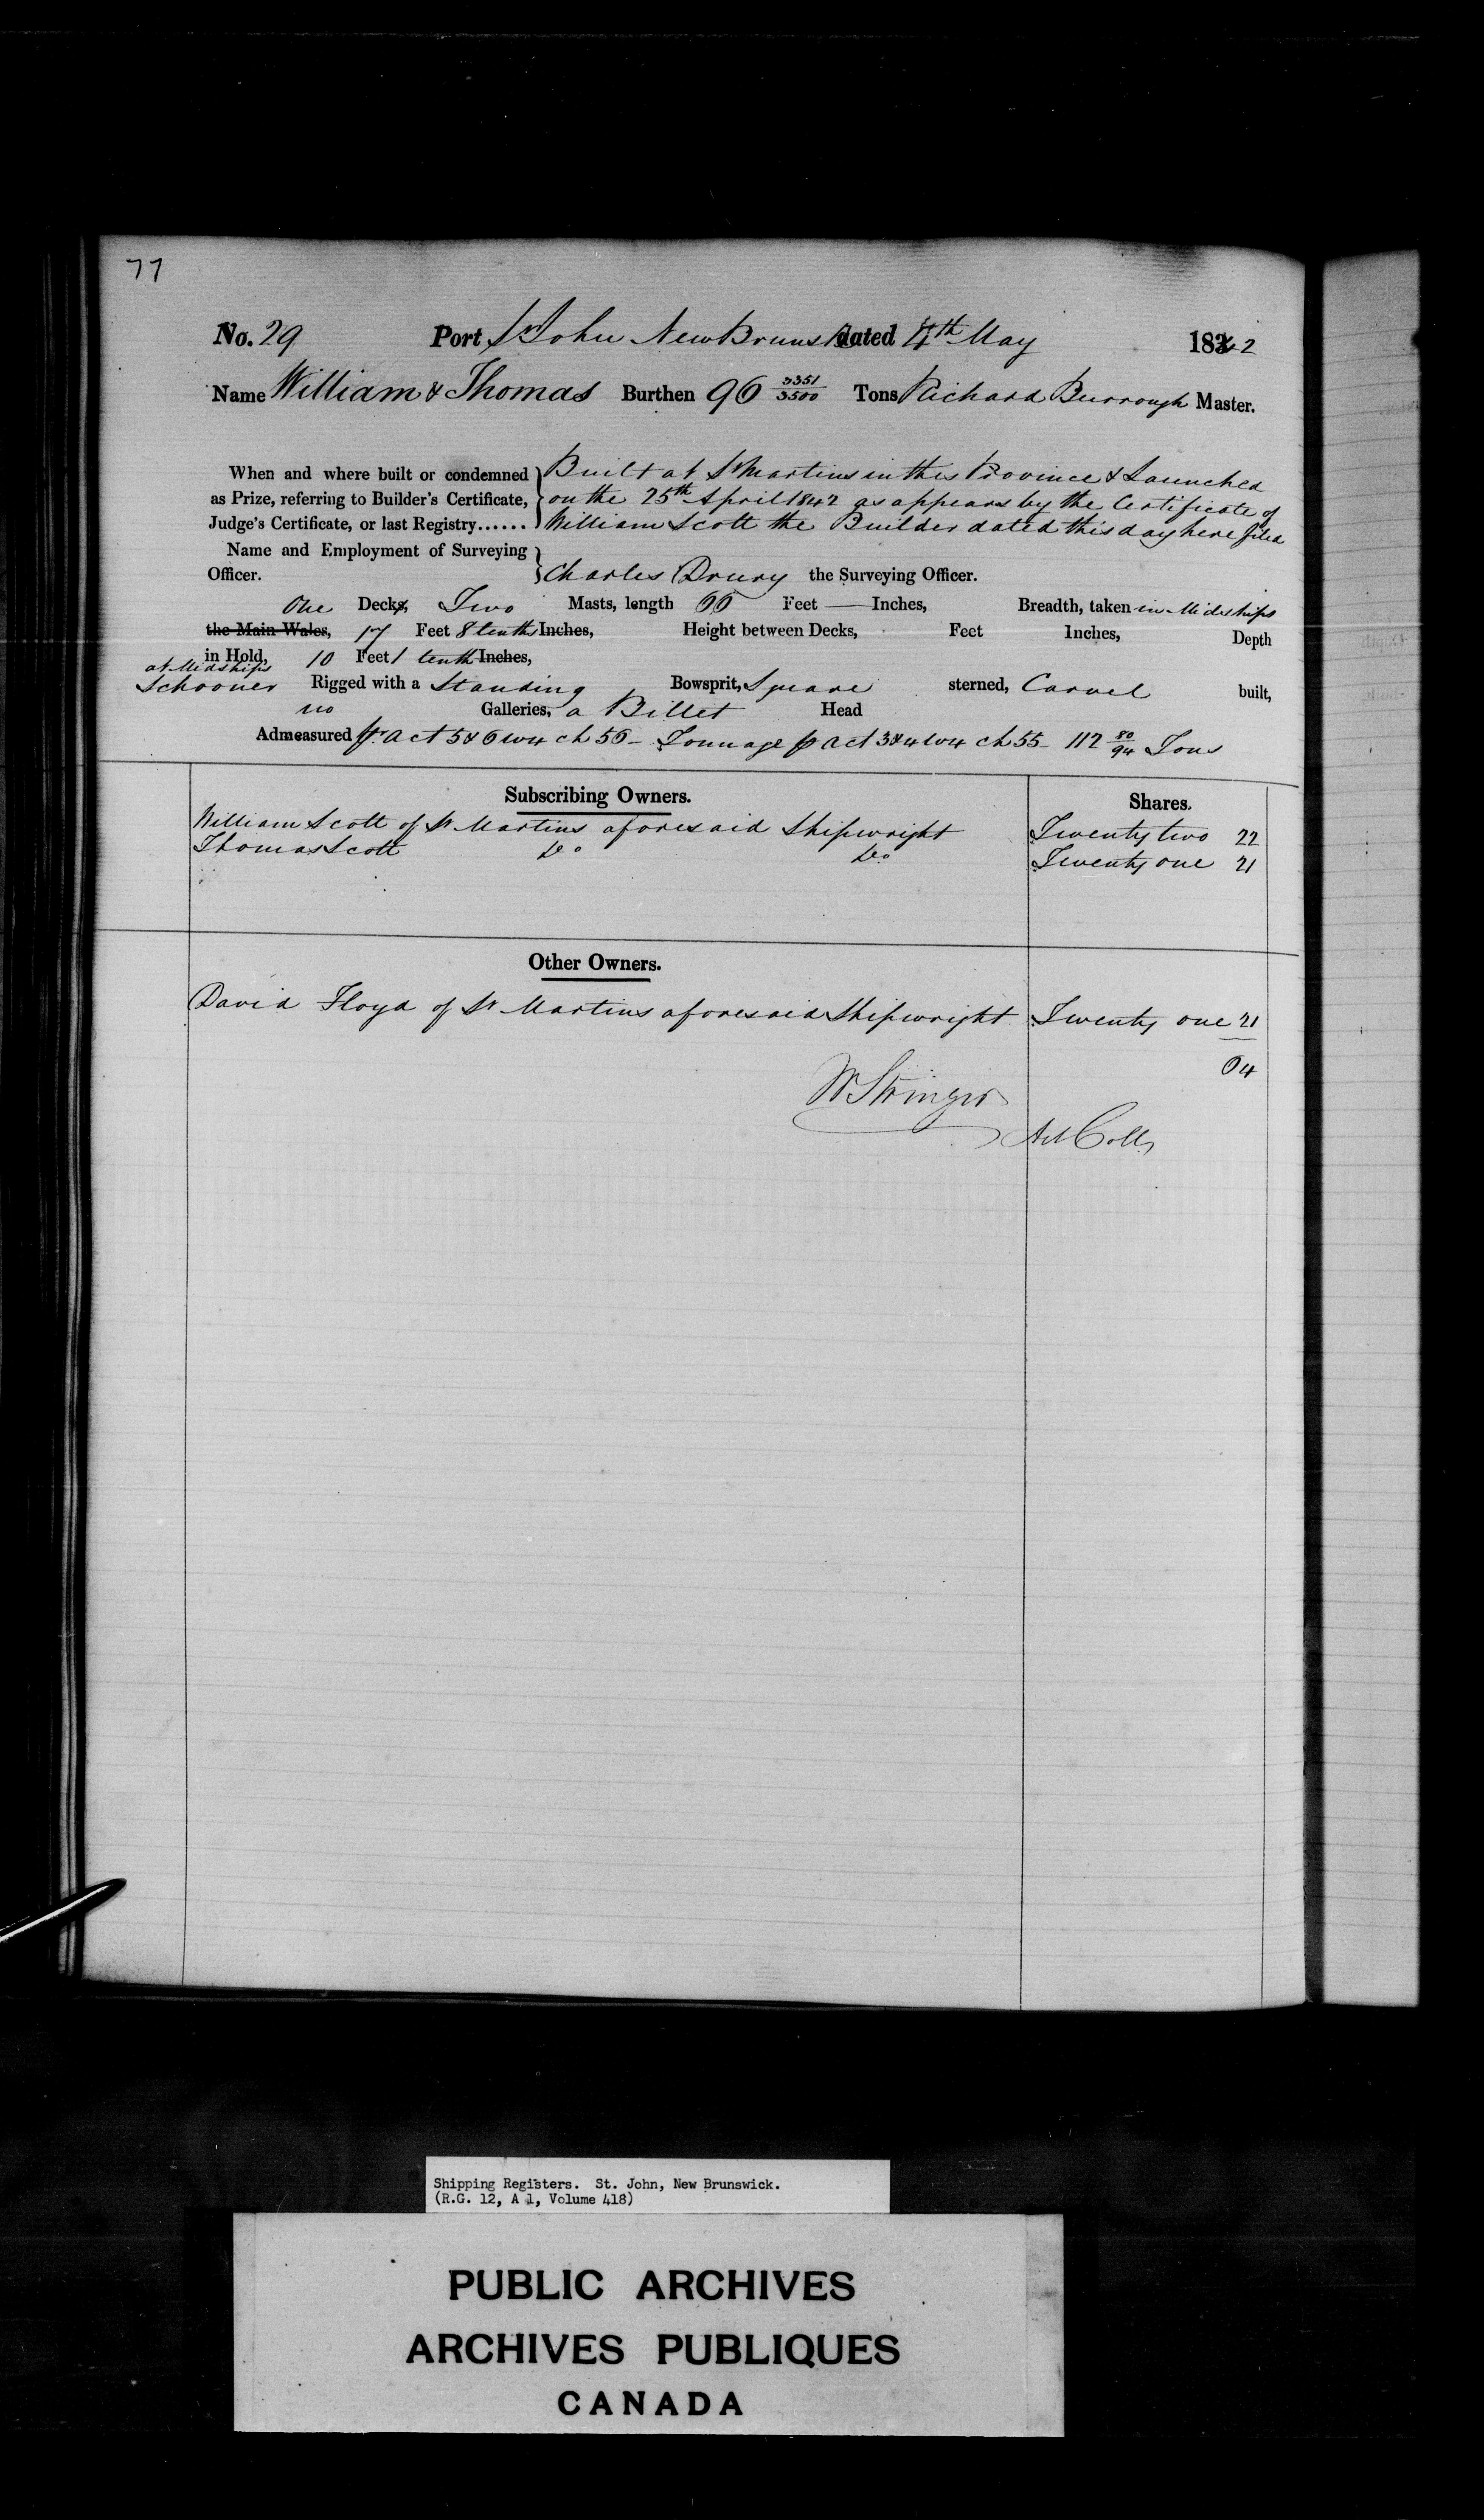 77
No. 29 Port St John New Brunswk dated 4th May 1842
Name William & Thomas Burthen 96 3351/3500 Tons Richard Burrough Master.
When and where built or condemned Built at St Martins in this Province & Launched
as Prize, referring to Builder's Certificate, on the 25th April 1842 as appears by the Certificate of
Judge's Certificate, or last Registry...... William Scott the Builder dated this day here filed
Name and Employment of Surveying
Officer. Charles Drury the Surveying Officer.
One Decks, Two Masts, length 66 Feet — Inches, Breadth, taken in Midships
the Main Wales, 17 Feet 8 tenths Inches, Height between Decks, Feet Inches, Depth
in Hold, 10 Feet 1 tenth Inches,
at Midships
Schooner Rigged with a Standing Bowsprit, Square sterned, Carvel built,
no Galleries, a Billet Head
Admeasured pr Act 5 & 6 W 4 ch 56 - Tonnage pr Act 3 & 4 W 4 ch 55 - 112 80/94 Tons
Subscribing Owners. Shares.
William Scott of St Martins aforesaid Shipwright Twenty two 22
Thomas Scott Do Do Twenty one 21
Other Owners.
David Floyd of St Martins aforesaid Shipwright Twenty one 21
64
W Stringer
Act Collr
Shipping Registers. St. John, New Brunswick.
(R.G. 12, A 1, Volume 418)
PUBLIC ARCHIVES
ARCHIVES PUBLIQUES
CANADA